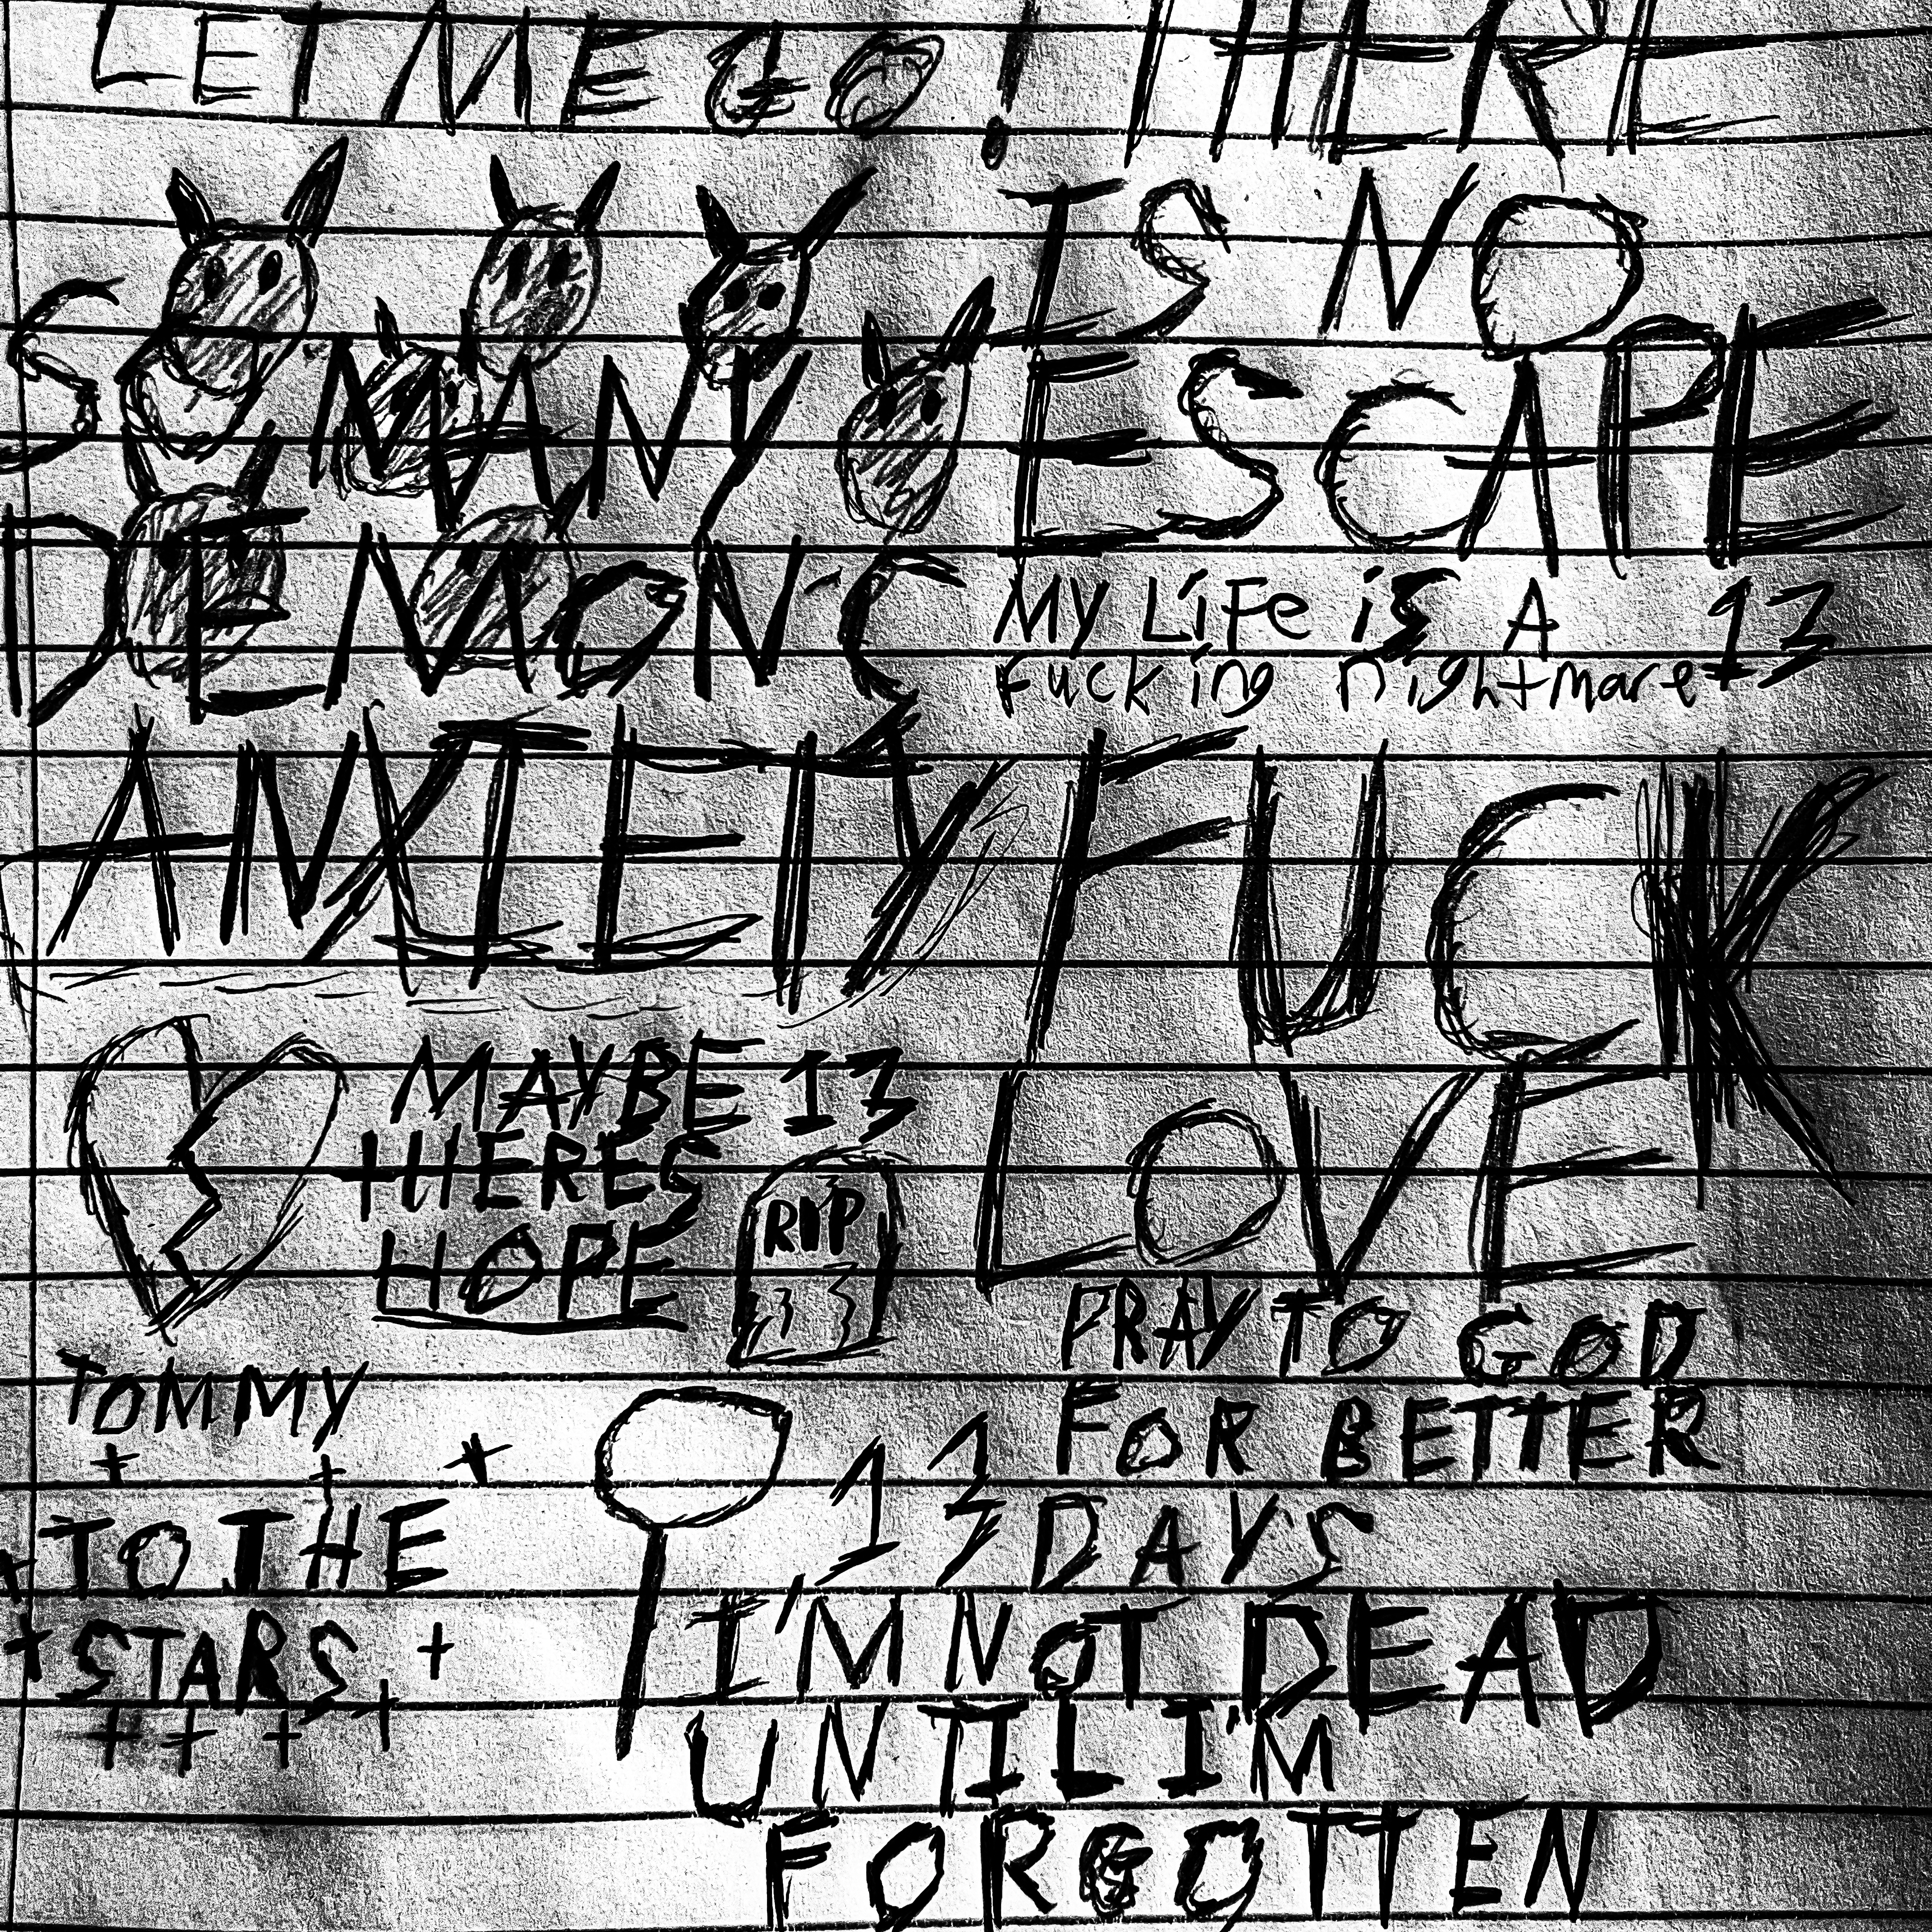 LET ME GO!
SO MANY
DEMONS
ANXIETY
THERE
IS NO
ESCAPE
MY LiFe iS A 13
Fucking nightmare
FUCK
LOVE
MAYBE 13
THERES
HOPE
RIP
13
TOMMY
TO THE
STARS
PRAY TO GOD
FOR BETTER
DAYS
13
I'M NOT DEAD
UNTIL I'M
FORGOTTEN